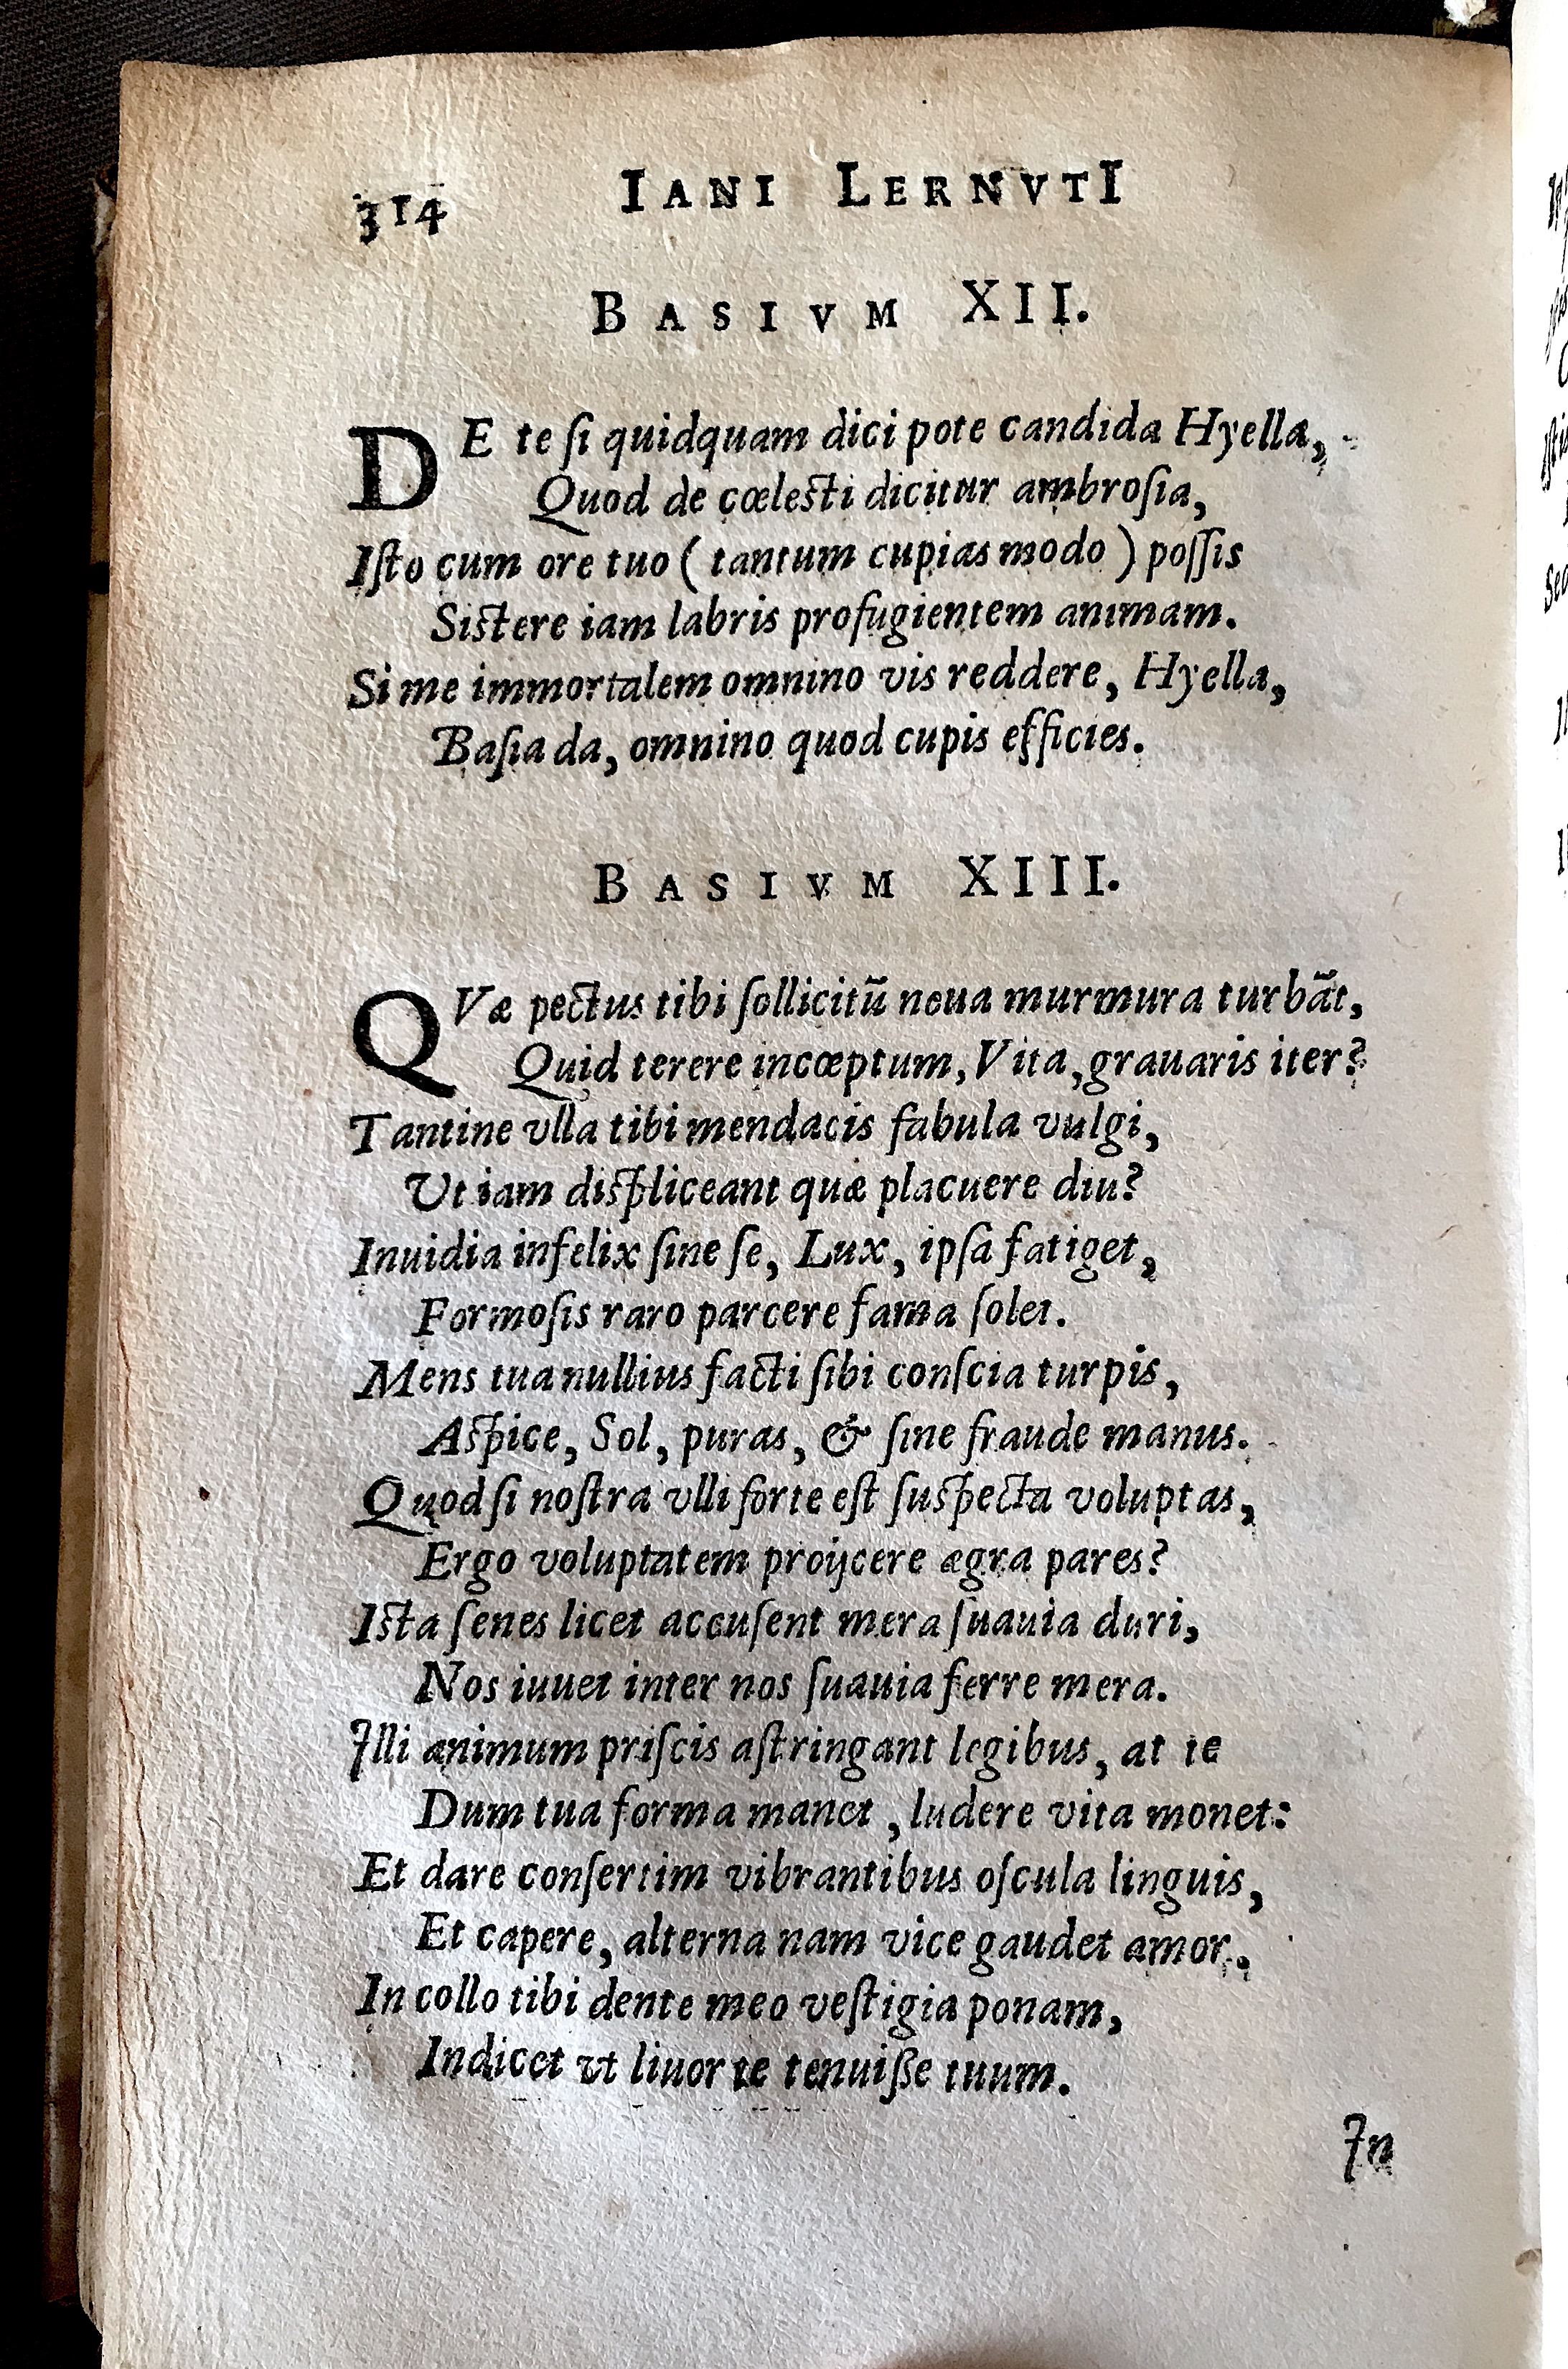 314 IANI LERNVTI
BASIVM XII.
DE te ſi quidquam dici pote candida Hyella,
Quod de cœleſti dicitur ambroſia,
Iſto cum ore tuo ( tantum cupias modo ) poſſis
Siſtere iam labris profugientem animam.
Si me immortalem omnino vis reddere, Hyella,
Baſia da, omnino quod cupis efficies.
BASIVM XIII.
QVæ pectus tibi ſollicitū noua murmura turbāt,
Quid terere incœptum, Vita, grauaris iter?
Tantine vlla tibi mendacis fabula vulgi,
Ut iam diſpliceant quæ placuere diu?
Inuidia infelix ſine ſe, Lux, ipſa fatiget,
Formoſis raro parcere fama ſolet.
Mens tua nullius facti ſibi conſcia turpis,
Aſpice, Sol, puras, & ſine fraude manus.
Quod ſi noſtra vlli forte eſt ſuſpecta voluptas,
Ergo voluptatem proijcere ægra pares?
Iſta ſenes licet accuſent mera ſuauia duri,
Nos iuuet inter nos ſuauia ferre mera.
Illi animum priſcis aſtringant legibus, at te
Dum tua forma manet, ludere vita monet:
Et dare conſertim vibrantibus oſcula linguis,
Et capere, alterna nam vice gaudet amor.
In collo tibi dente meo veſtigia ponam,
Indicet vt liuor te tenuiſſe tuum.
In